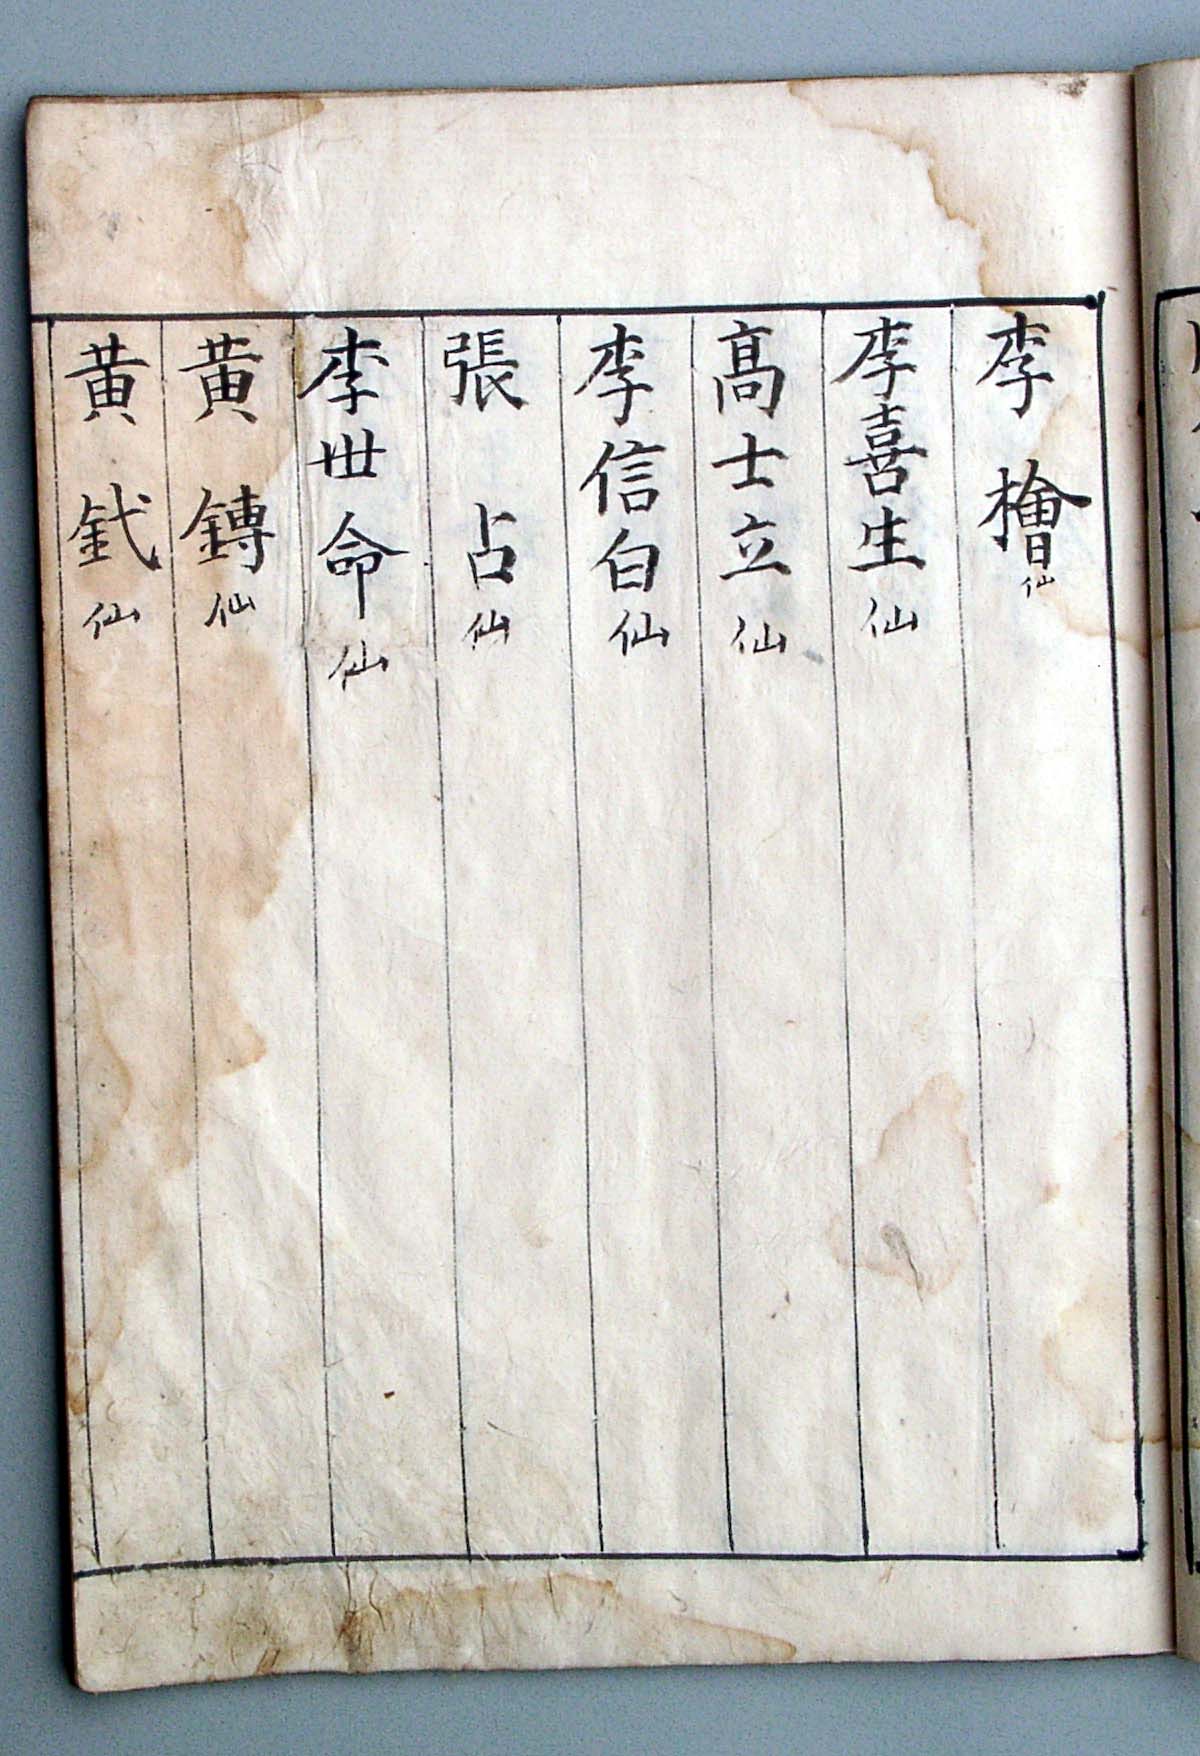 李檜仙
李喜生仙
高士立仙
李信白仙
張占仙
李世命仙
黃鏄仙
黃釴仙